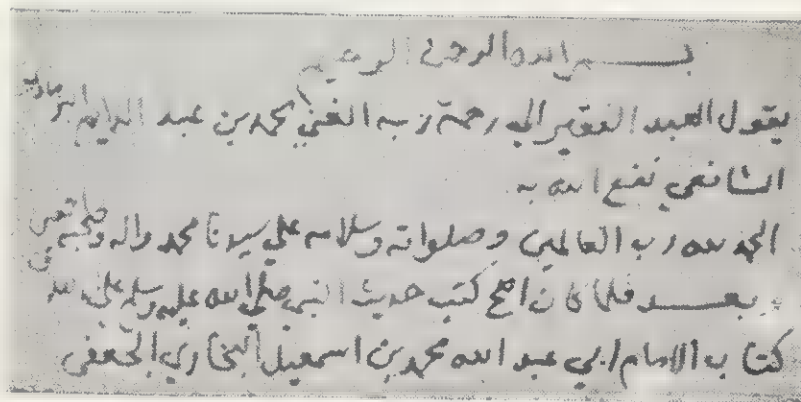 بسم الله الرحمن الرحيم
يقول العبد الفقير الي رحمة ربه الغني محمد بن عبد الدايم البرماوي
الشافعي نفع الله به
الحمد لله رب العالمين وصلواته وسلامه علي سيدنا محمد واله وصحبه
وبعد فلما كان اصح كتب حديث النبي صلي الله عليه وسلم
كتاب الامام ابي عبد الله محمد بن اسمعيل البخاري الجعفي